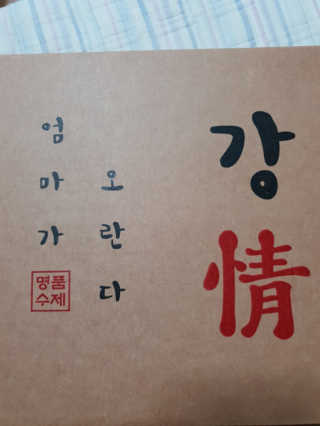 강
情
오란다
엄마가
명품
수제